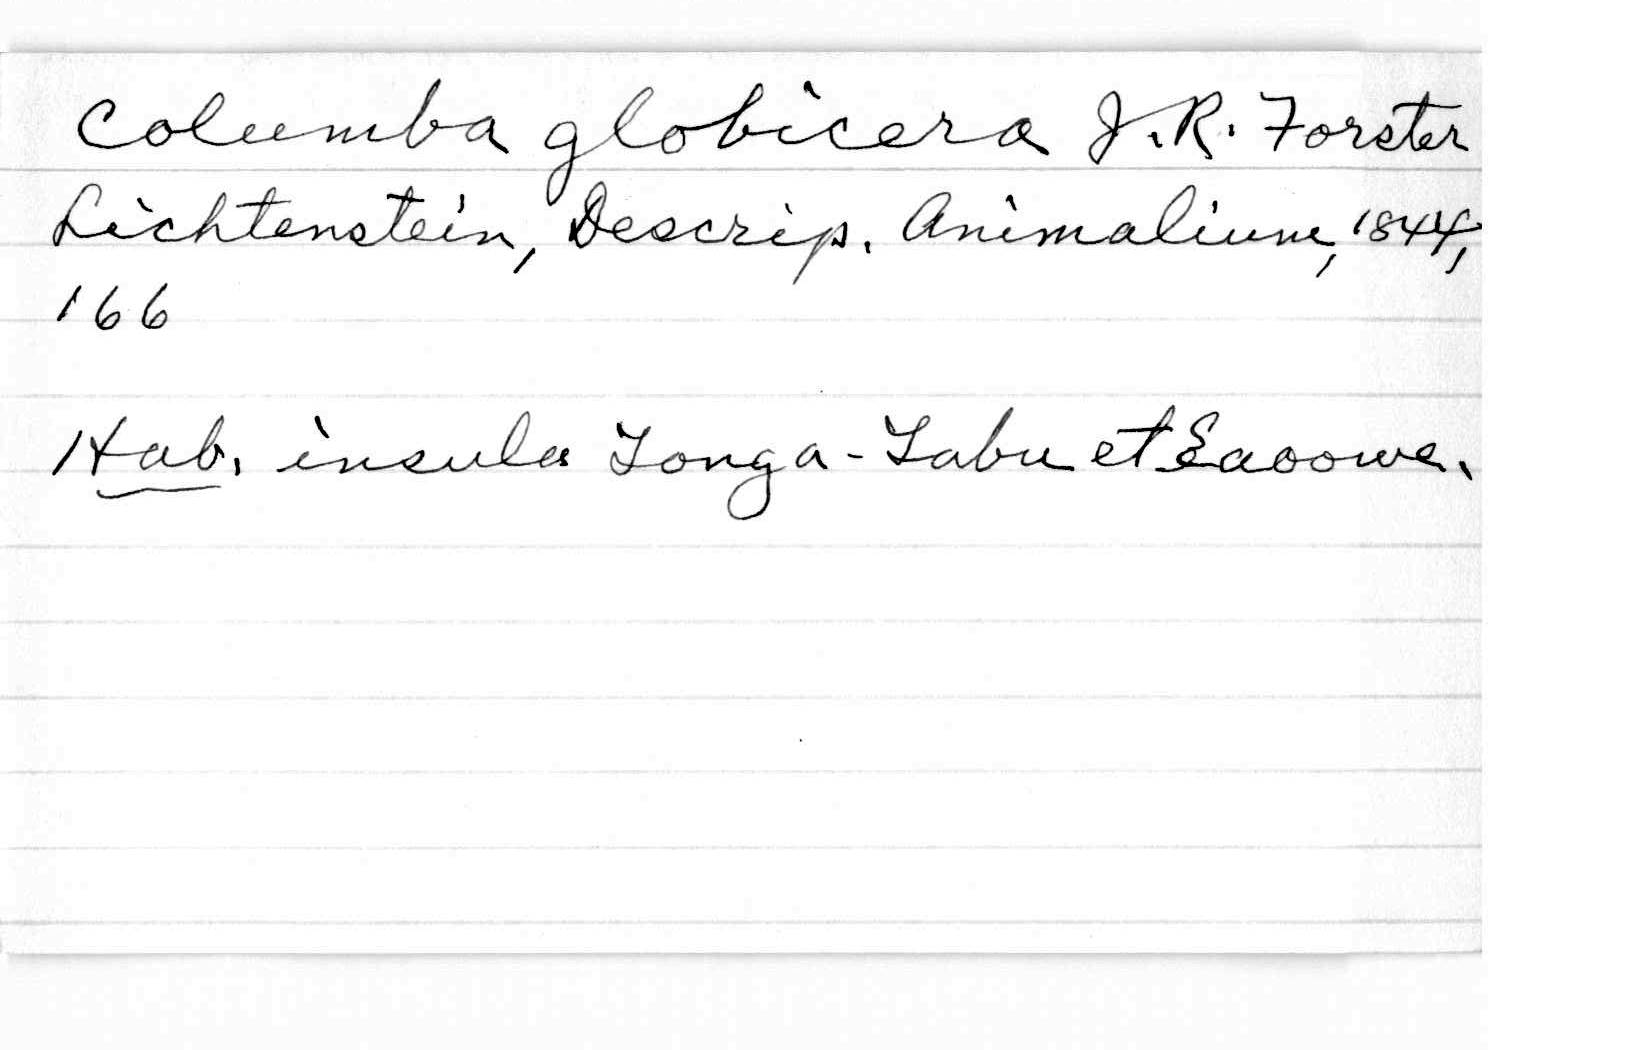 Columba globicera J.R. Forster
Lichtenstein, Descrip. Animalium, 1844,
166
Hab. insula Tonga-Tabu et Eaoowe.